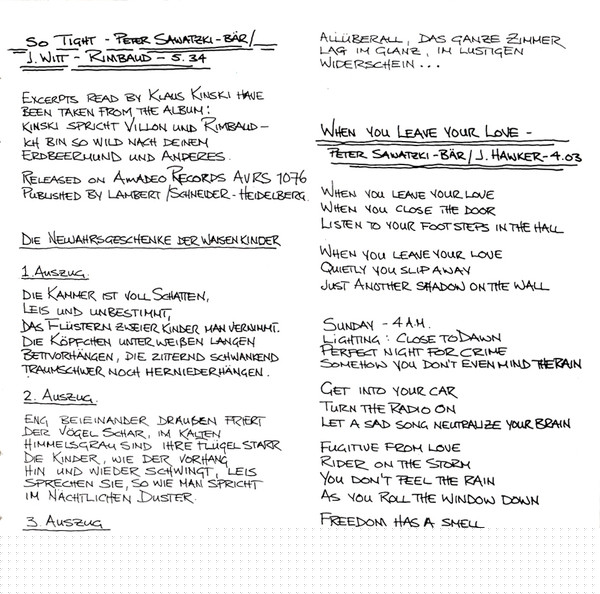 So Tight - Peter Sawatzki-Bär/
J. Witt - Rimbaud - 5.34
Excerpts read by Klaus Kinski have
been taken from the album:
Kinski spricht Villon und Rimbaud -
Ich bin so wild nach deinem
Erdbeermund und anderes.
Released on Amadeo Records AVRS 1076
Published by Lambert/Schneider-Heidelberg.
Die Neujahrsgeschenke der Waisenkinder
1. Auszug.
Die Kammer ist voll Schatten,
leis und unbestimmt,
das Flüstern zweier Kinder man vernimmt.
Die Köpfchen unter weißen langen
Bettvorhängen, die zitternd schwankend
traumschwer noch herniederhängen.
2. Auszug.
Eng beieinander draußen friert
der Vögel Schar, im kalten
Himmelsgrau sind ihre Flügel starr
die Kinder, wie der Vorhang
hin und wieder schwingt, leis
sprechen sie, so wie man spricht
im nächtlichen Duster.
3. Auszug
Allüberall, das ganze Zimmer
lag im Glanz, im lustigen
Widerschein...
When You Leave Your Love -
Peter Sawatzki-Bär/J. Hawker-4.03
When you leave your love
When you close the door
Listen to your footsteps in the hall
When you leave your love
Quietly you slip away
Just another shadow on the wall
Sunday - 4 A.M.
Lighting: Close to dawn
Perfect night for crime
Somehow you don't even mind the rain
Get into your car
Turn the radio on
Let a sad song neutralize your brain
Fugitive from love
Rider on the storm
You don't feel the rain
As you roll the window down
Freedom has a smell